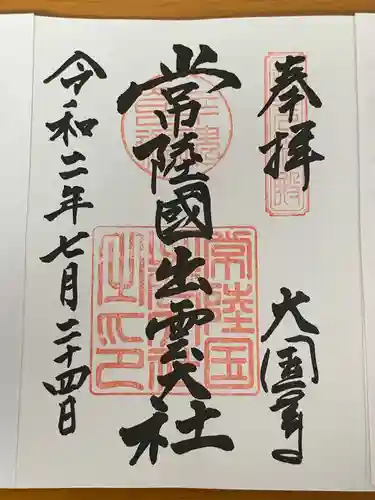 奉拝
大国霊
常陸國出雲大社
令和二年七月二十四日
常陸国